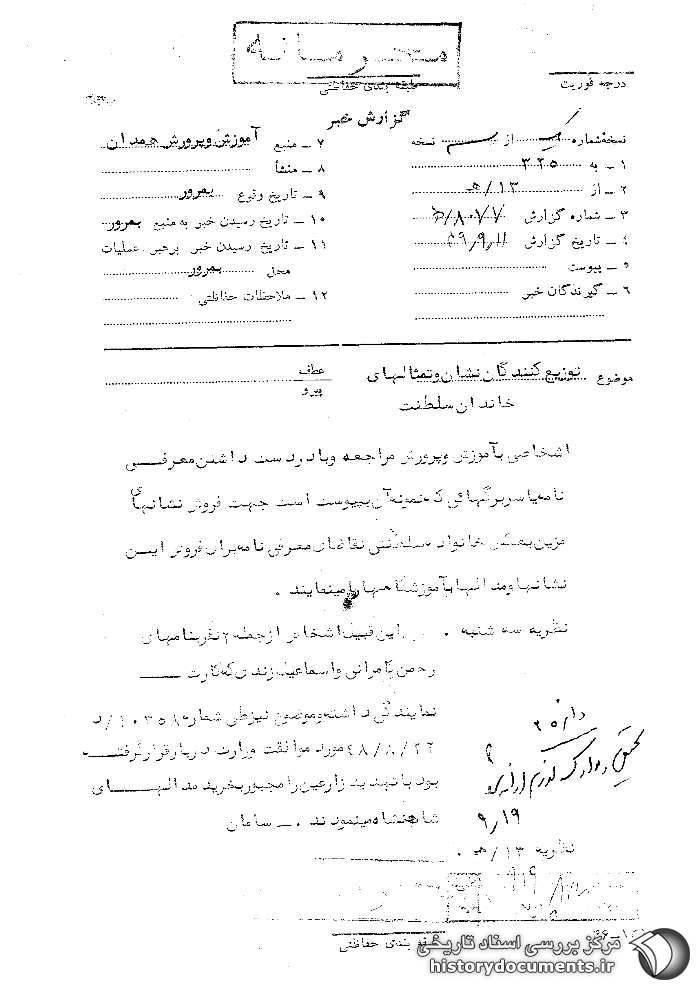 محرمانه
طبقه بندی حفاظتی
درجه فوریت
گزارش خبر
نسخه شماره یک از سه نسخه
۱ - به ۳۲۵
۲ - از ۱۳/هـ
۳ - شماره گزارش
۴ - تاریخ گزارش ۴۹,۹,۱۱
۵ - پیوست
۶ - گیرندگان خبر
۷ - منبع آموزش و پرورش همدان
۸ - منشأ
۹ - تاریخ وقوع بمرور
۱۰ - تاریخ رسیدن خبر به منبع بمرور
۱۱ - تاریخ رسیدن خبر برهبر عملیات
محل بمرور
۱۲ - ملاحظات حفاظتی
موضوع توزیع کنندگان نشان و تمثالهای
خاندان سلطنت
عطف
پیرو
اشخاصی بآموزش و پرورش مراجعه و با در دست داشتن معرفی
نامه یا سربرگهائی که نمونه آن بپیوست است جهت فروش نشانهای
مزین بعکس خانواده سلطنتی تقاضای معرفی نامه برای فروش این
نشانها و مدالها بآموزشگاهها را مینمایند .
نظریه سه شنبه . این قبیل اشخاص از جمله ۲ نفر بنامهای
رحمن کامرانی و اسماعیل زندی که کارت
نمایندگی داشته و موضوع نیز طی شماره ۱۰۳۵۸/د
۴۸/۸/۲۲ مورد موافقت وزارت دربار قرار گرفته
بود با تهدید زارعین را مجبور بخرید مدالهای
شاهنشاه مینمودند . - سامان
نظریه ۱۳/هـ .
۲۵
۹,۱۹
طبقه بندی حفاظتی
مرکز بررسی اسناد تاریخی
historydocuments.ir